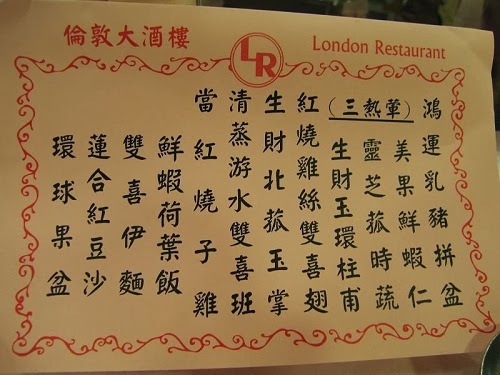 倫敦大酒樓
LR
London Restaurant
鴻運乳豬拼盆
(三熱葷)
美果鮮蝦仁
靈芝菰時蔬
生財玉環柱甫
紅燒雞絲雙喜翅
生財北菰玉掌
清蒸游水雙喜班
當紅燒子雞
鮮蝦荷葉飯
雙喜伊麵
蓮合紅豆沙
環球果盆